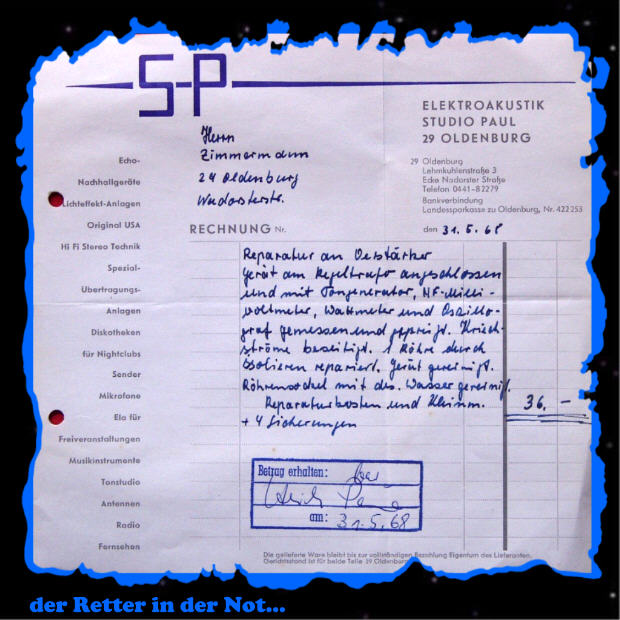 S-P
ELEKTROAKUSTIK
STUDIO PAUL
29 OLDENBURG
29 Oldenburg
Lehmkuhlenstraße 3
Ecke Nadorster Straße
Telefon 0441-82279
Bankverbindung
Landessparkasse zu Oldenburg, Nr. 422 253
Herrn
Zimmermann
29 Oldenburg
Nadorsterstr.
Echo-
Nachhallgeräte
Lichteffekt-Anlagen
Original USA
Hi Fi Stereo Technik
Spezial-
Übertragungs-
Anlagen
Diskotheken
für Nightclubs
Sender
Mikrofone
Ela für
Freiveranstaltungen
Musikinstrumente
Tonstudio
Antennen
Radio
Fernsehen
RECHNUNG Nr.
den 31.5.68
Reparatur an Verstärker
Gerät am Regeltrafo angeschlossen
und mit Tongenerator, NF-Milli-
voltmeter, Wattmeter und Oszillo-
graf gemessen und geprüft. Kriech-
ströme beseitigt. 1 Röhre durch
Isolieren repariert. Gerät gereinigt.
Röhrensockel mit des. Wasser gereinigt.
Reparaturkosten und Kleinm. 36.-
+ 4 Sicherungen
Betrag erhalten: bar
am: 31.5.68
Die gelieferte Ware bleibt bis zur vollständigen Bezahlung Eigentum des Lieferanten.
Gerichtsstand ist für beide Teile 29 Oldenburg
der Retter in der Not...